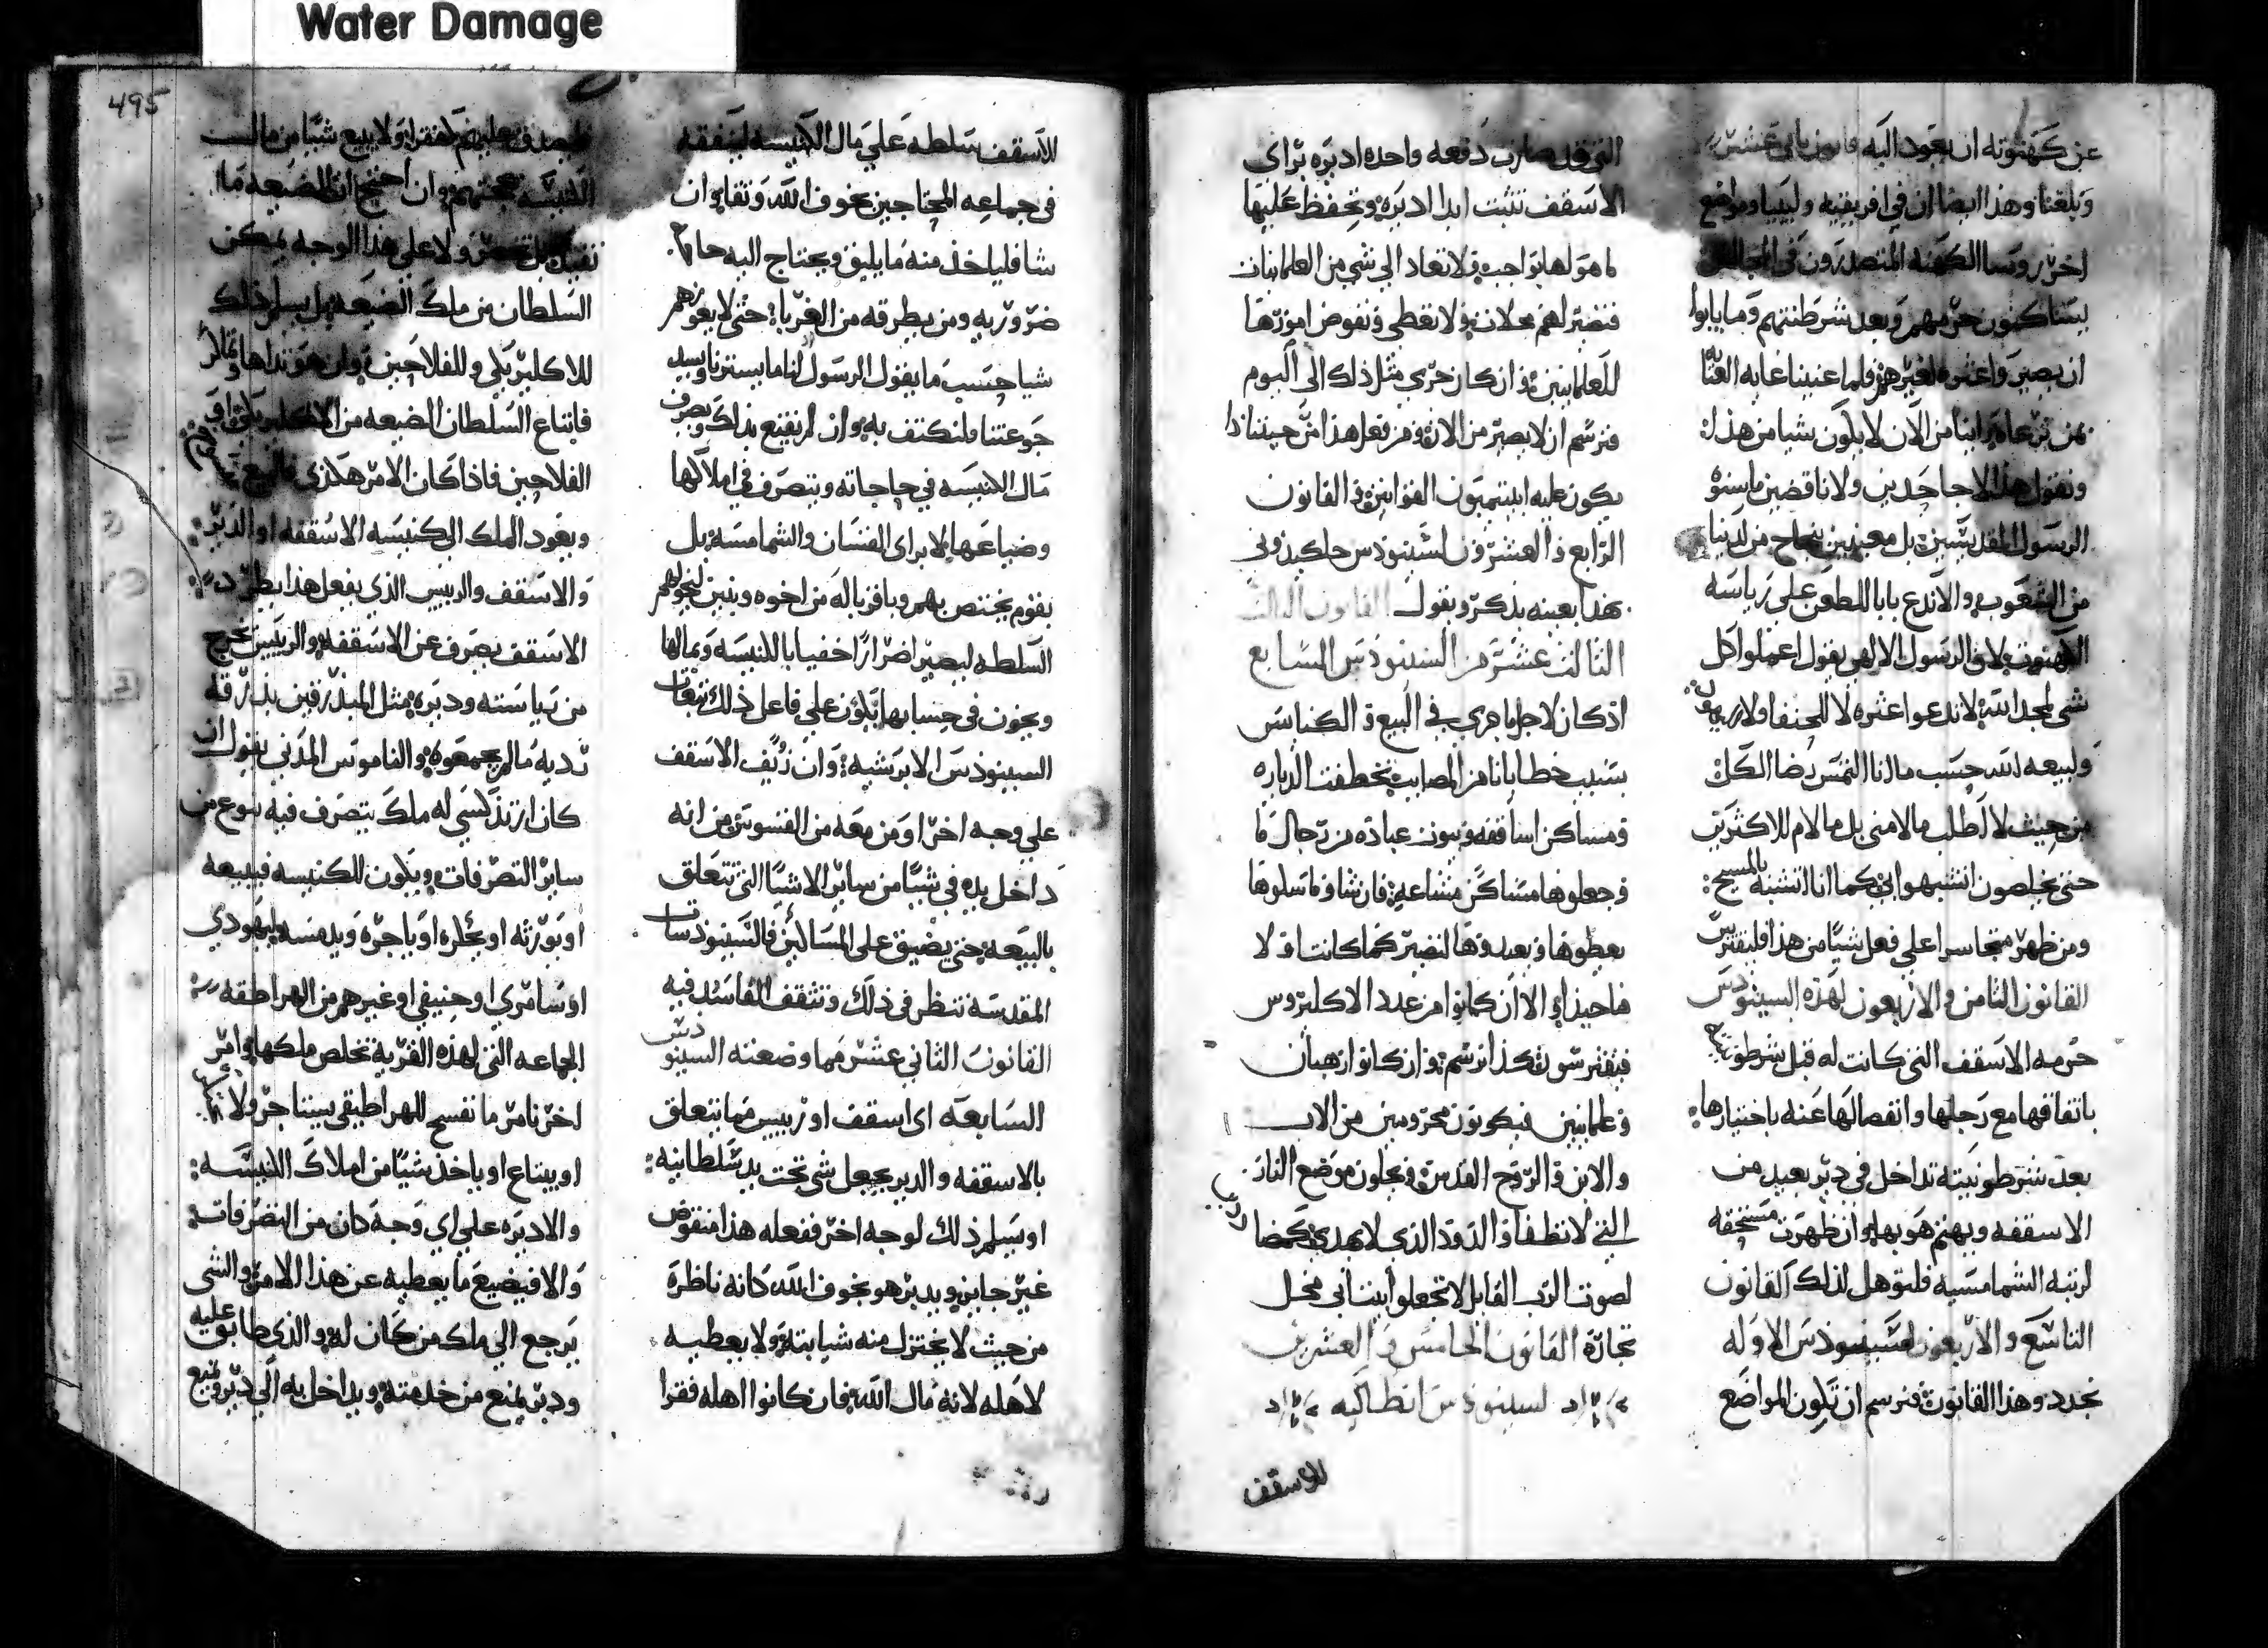 Water Damage
495
عن كهنوته ان يعود اليه قانون ثاني عشر
وبلغنا وهذا ايضا ان في افريقيه وليبيا ومواضع
اخر روسا الكهنه المتصدرون في المجالس
يساكنون حرمهم وبعد شرطنتهم وما يابوا
ان يصير واعثره لغيرهم فلما عنينا غايه العنايه
من الان لا يكون شيا من هذا
ونقول هذا لا جاحدين ولا ناقضين ما سنوه
الرسول المقديسين بل معنيين بنجاح من لدينا
من الشعوب والا ندع بابا للطعن على رياسه
الكهنوت لان الرسول الالهي يقول اعملوا كل
شي لمجد الله لا تدعوا عثره لا للحنفا ولا
ولبيعه الله حسب ما انا التمس رضا الكل
من حيث لا اطلب مالامني بل مالام للاكثرين
حتى يخلصون اتشبهوا بي كما انا اتشبه بالمسيح
ومن ظهر متجاسرا على فعل شيا من هذا فليقترس
القانون الثامن والاربعون لهذه السينودس
حرمه الاسقف التي كانت له قبل شرطونيته
باتفاقهما مع رجلها وانفصالها عنه باختيارها
بعد شرطونيته تداخل في دير بعيد من
الاسقفه ويهتم هو بها وان ظهرت مستحقه
لرتبه الشماسيه فلتوهل لذلك القانون
التاسع والاربعون لسينودس الاوله
نجدد وهذا القانون ونرسم ان تكون المواضع
التي قد صارت دفعه واحده اديره براي
الاسقف تثبت ابدا اديره وتحفظ عليها
ما هو لها بواجب ولا تعاد الى شي من العلمانيات
فتصير لهم محلات ولا تعطى وتفوض امورها
للعلمانيين وان كان جرى مثل ذلك الى اليوم
فنرسم ان لا يصير من الان ومن فعل هذا من حيننا اذا
يكون عليه القوانين والقانون
الرابع والعشرون لسينودس خلكيدوني
هذا بعينه يذكر ويقول القانون الثالث
الثالث عشر من السينودس السابع
اذ كان لاجل ما جرى في البيع والكنايس
بسبب خطايانا من المصايب تخطفت الدياره
ومساكن اساقفه وبيوت عباده من رجال ما
وجعلوها مساكن مشاعه فان شاوا ما تسلوها
يعطوها ويعيدوها لتصير كما كانت اولا
فاحيذا والا ان كانوا من عدد الاكليروس
فيقترسون هكذا نرسم وان كانوا رهبان
وعلمانيين فيكونون محرومين من الاب
والابن والروح القدس ويحلون موضع النار
التي لا تطفا والدود الذي لا يهدى
لصوت الرب القايل لا تجعلوا بيت ابي محل
تجاره القانون الخامس والعشرين
لسينودس انطاكيه
للاسقف
للاسقف سلطه على مال الكنيسه لينفقه
في جماعه المحتاجين بخوف الله وتقاه وان
شا فلياخذ منه ما يليق ويحتاج اليه
ضروريه ومن يطرقه من الغربا حتى لا يعوزهم
شيا حسب ما يقول الرسول لنا ما يسترنا ويسد
جوعتنا فلنكتف به وان لم يقتنع بذلك ويصرف
مال الكنيسه في حاجاته ويتصرف في املاكها
وضياعها لا براي القسان والشمامسه بل
يقوم يختص بهم وباقربا له من اخوه وبنين
السلطه ليصير اضرارا خفيا بالكنيسه وبمالها
ويخون في حسابها يكون على فاعل ذلك
السينودس الابرشيه وان زيف الاسقف
على وجه اخر او من معه من القسوس من انه
داخل يده في شيا من ساير الاشيا التي تتعلق
بالبيعه حتى يضيق على المساكين فالسينودسات
المقدسه تنظر في ذلك وتثقف الفاسد فيه
القانون الثاني عشر مما وضعته السينودس
السابعه اي اسقف او رييس مما يتعلق
بالاسقفه والدير يجعل شي تحت يد سلطانيه
او يسلم ذلك لوجه اخر ففعله هذا منقوض
غير جايز ويدبر هو بخوف الله كانه ناظره
من حيث لا يختزل منه شيا بته ولا يعطيه
لاهله لانه مال الله فان كانوا اهله فقرا
ولا يبيع شيا من مال
الكنيسه بحجتهم وان احتج ان الضيعه ما
ولا على هذا الوجه يمكن
السلطان من ملك الضيعه بل يسلم ذلك
للاكليريكي وللفلاحين
فابتاع السلطان الضيعه من الاكليريكي او
الفلاحين فاذا كان الامر هكذى
ويعود الملك الى كنيسه الاسقفه او الدير
والاسقف والرييس الذي يفعل هذا يطرد
الاسقف يصرف عن الاسقفه والرييس يخرج
من رياسته وديره مثل المبذرقين بذرقه
رديه ما لم يجمعوه والناموس المدني يقول ان
كان ارتدكسي له ملك يتصرف فيه بنوع من
ساير التصرفات ويكون للكنيسه فيبيعه
او يورثه او يكره او ياجره ويدفنه وليهودي
او سامري او حنيفي او غيرهم من الهراطقه
الجماعه التي لهذه القريه تخلص ملكها وامر
اخر نامر ما نفسح للهراطيقي يستاجر ولا
او يبتاع او ياخذ شيا من املاك الكنيسه
والاديره على اي وجه كان من التصرفات
والا فيضيع ما يعطيه عن هذا الامر والشي
يرجع الى ملك من كان له والذي طابق عليه
ودبر يمنع من خدمته ويداخل به الى دير ويمنع